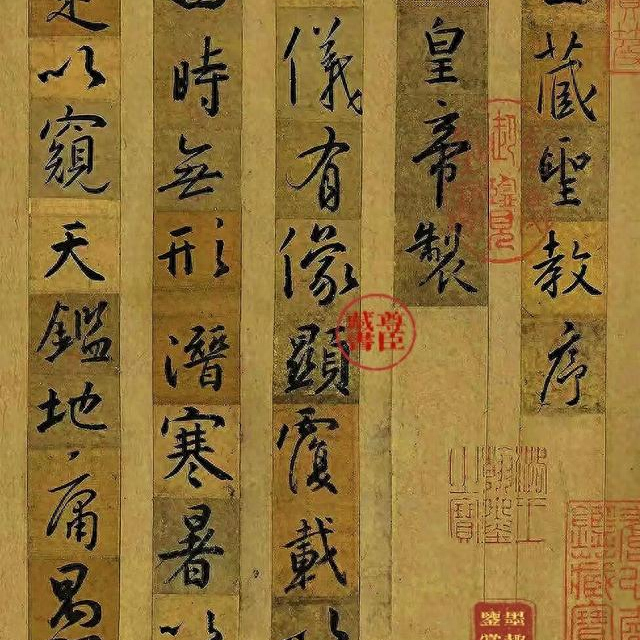 藏聖教序
皇帝製
儀有像顯覆載
時無形潛寒暑以
以窺天鑑地庸愚
尊臣
藏書